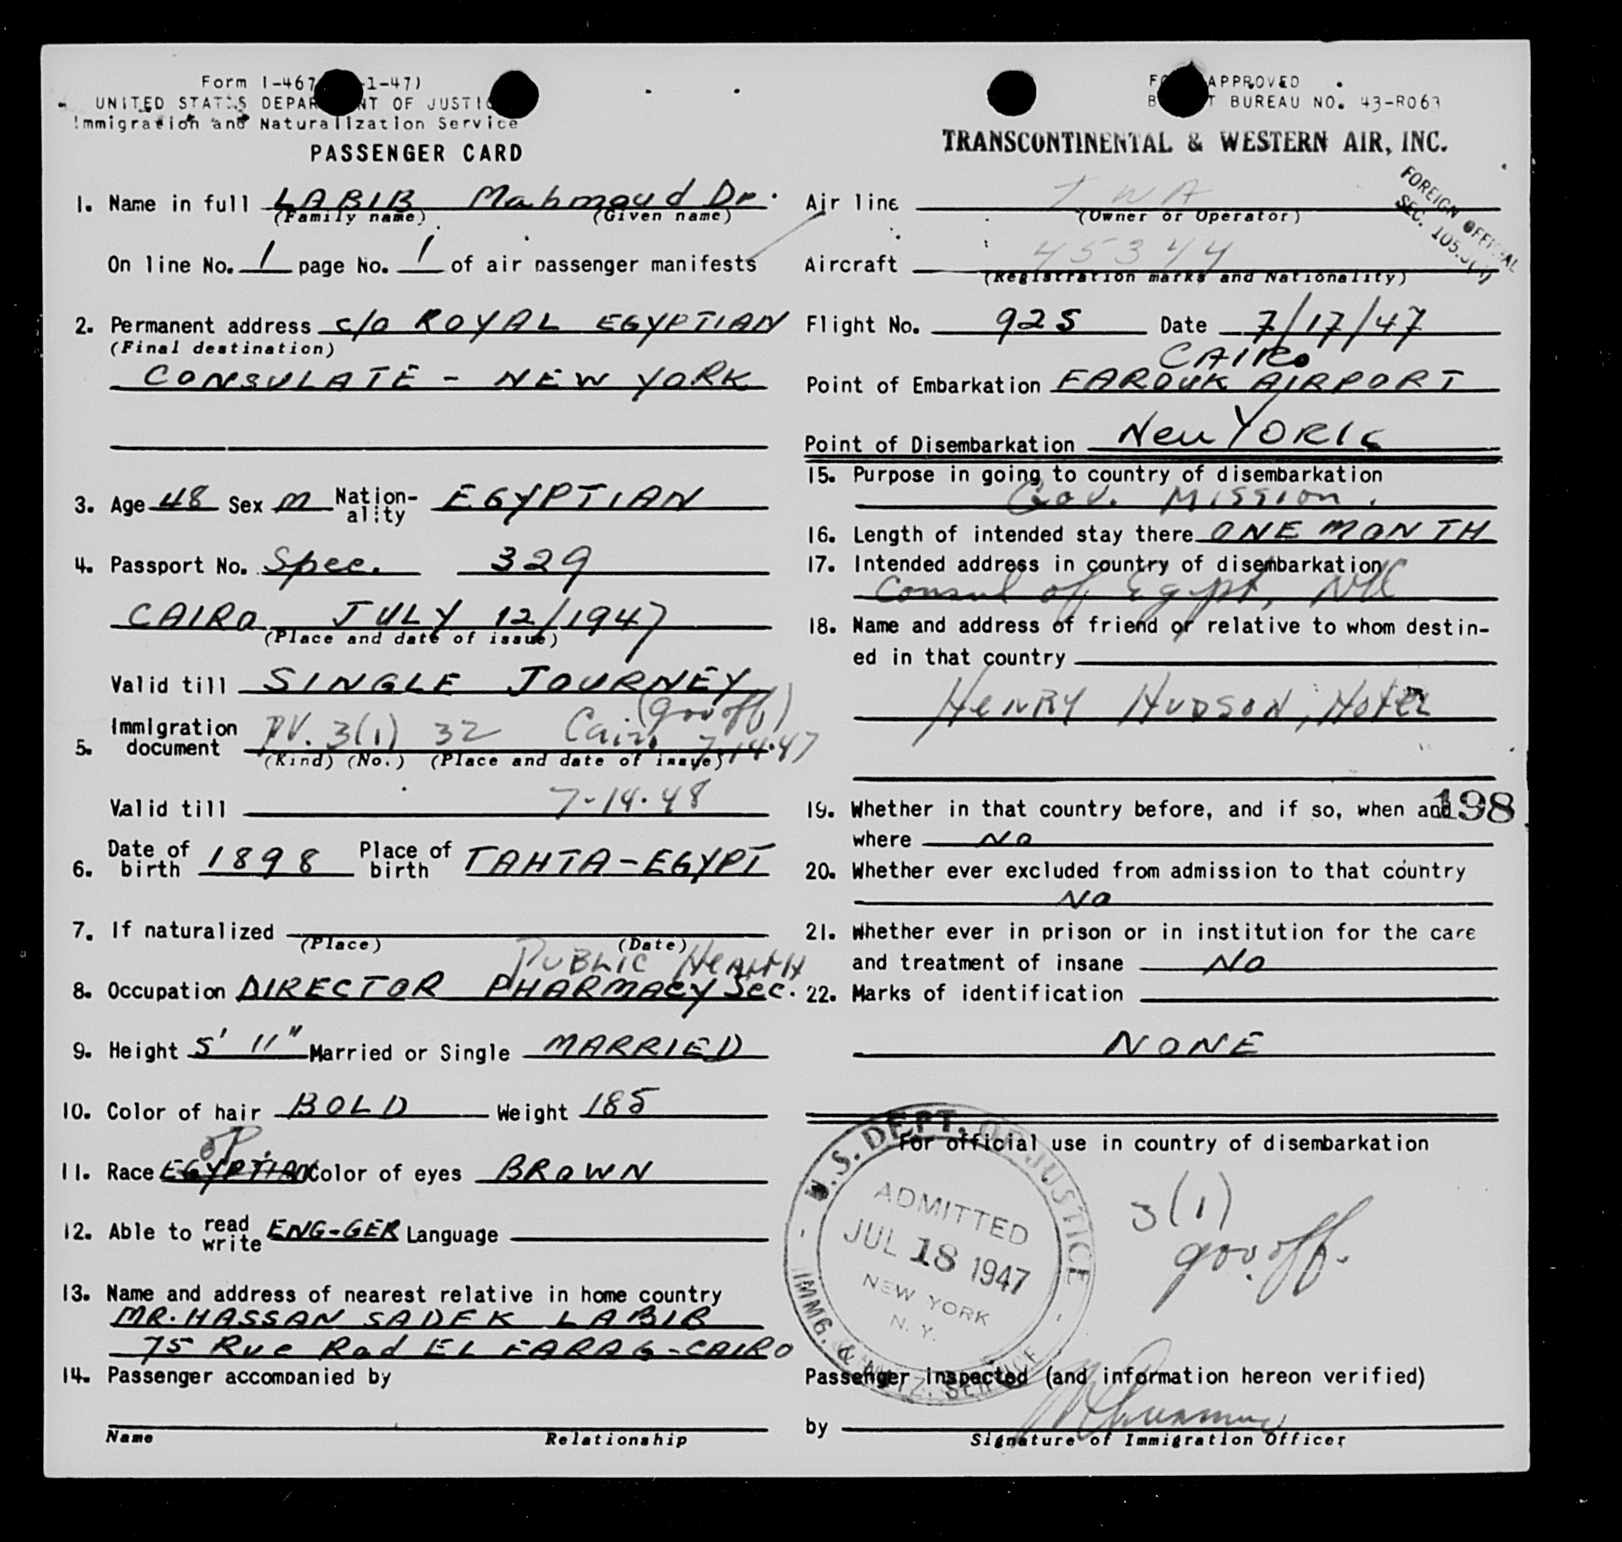 Form I-467 1-47)
UNITED STATES DEPARTMENT OF JUSTICE
Immigration and Naturalization Service
PASSENGER CARD
1. Name in full LABIB Mahmoud Dr.
(Family name) (Given name)
On line No. 1 page No. 1 of air passenger manifests
2. Permanent address c/o ROYAL EGYPTIAN
(Final destination)
CONSULATE - NEW YORK
3. Age 48 Sex M Nation-ality EGYPTIAN
4. Passport No. Spec. 329
CAIRO JULY 12/1947
(Place and date of issue)
Valid till SINGLE JOURNEY
(gov off)
5. Immigration document PV. 3(1) 32 Cairo 7-14-47
(Kind) (No.) (Place and date of issue)
Valid till 7-14-48
6. Date of birth 1898 Place of birth TAHTA-EGYPT
7. If naturalized
(Place) (Date)
PUBLIC HEALTH
8. Occupation DIRECTOR PHARMACY Sec.
9. Height 5' 11" Married or Single MARRIED
10. Color of hair BOLD Weight 185
11. Race EGYPTIAN Color of eyes BROWN
12. Able to read write ENG-GER Language
13. Name and address of nearest relative in home country
MR. HASSAN SADEK LABIB
75 Rue Rod EL FARAG-CAIRO
14. Passenger accompanied by
Name Relationship
APPROVED
BUREAU NO. 43-R063
TRANSCONTINENTAL & WESTERN AIR, INC.
FOREIGN OFFICIAL
SEC. 105.3(
Air line TWA
(Owner or Operator)
Aircraft 45344
(Registration marks and Nationality)
Flight No. 925 Date 7/17/47
CAIRO
Point of Embarkation FAROUK AIRPORT
Point of Disembarkation New YORK
15. Purpose in going to country of disembarkation
Gov. Mission.
16. Length of intended stay there ONE MONTH
17. Intended address in country of disembarkation
Consul of Egypt, NYC
18. Name and address of friend or relative to whom destin-
ed in that country
HENRY HUDSON, HOTEL
198
19. Whether in that country before, and if so, when and
where No
20. Whether ever excluded from admission to that country
No
21. Whether ever in prison or in institution for the care
and treatment of insane No
22. Marks of identification
NONE
For official use in country of disembarkation
U.S. DEPT. OF JUSTICE
ADMITTED
JUL 18 1947
NEW YORK
N.Y.
IMMG. & NATZ. SERVICE
3(1)
gov. off.
Passenger inspected (and information hereon verified)
by
Signature of Immigration Officer